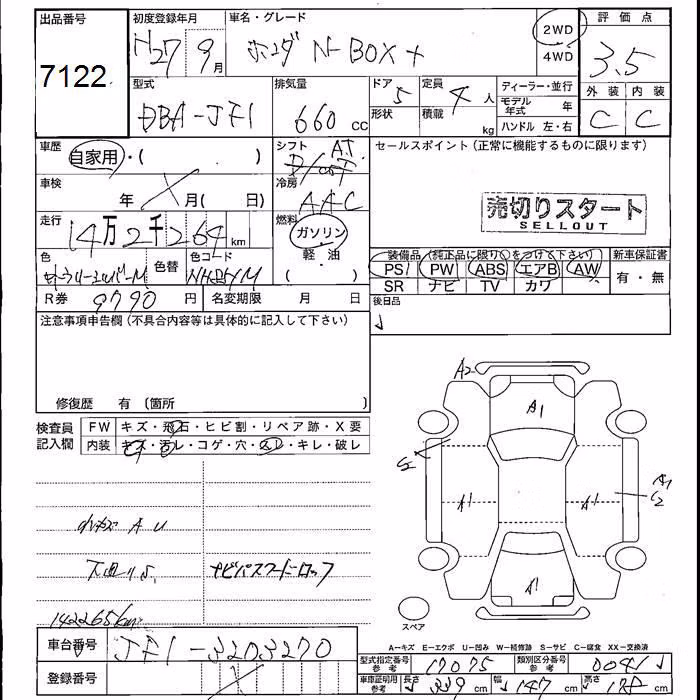 出品番号
7122
初度登録年月
H27 9月
車名・グレード
ホンダ N-BOX+
2WD
4WD
評価点
3.5
外装 内装
C C
型式
DBA-JF1
排気量
660 cc
ドア 形状
5
定員 積載
4 人
kg
ディーラー・並行
モデル年式 年
ハンドル 左・右
車歴
自家用・( )
シフト
AT
車検
年 月( 日)
冷房
AAC
走行
14万2千264 km
燃料
ガソリン
軽・油
( )
色
色替
色コード
R券
9790 円
名変期限 月 日
セールスポイント(正常に機能するものに限ります)
売切りスタート
SELLOUT
装備品(純正品に限り○をつけて下さい)
PS PW ABS エアB AW
SR ナビ TV カワ
新車保証書
有・無
後日品
注意事項申告欄(不具合内容等は具体的に記入して下さい)
修復歴 有(箇所 )
検査員記入欄
FW キズ・飛石・ヒビ割・リペア跡・X要
内装 キズ・汚レ・コゲ・穴・スレ・キレ・破レ
小キズ A U
下回りS
ナビパスワードロック
142265km
A2
A1
A1
A1
A1
C2
A1
スペア
A-キズ E-エクボ U-凹み W-補修跡 S-サビ C-腐食 XX-交換済
車台番号
JF1-3203270
登録番号
型式指定番号 参考
17075
類別区分番号 参考
0041
車庫証明用 参考
長さ 339 cm
幅 147 cm
高さ 178 cm